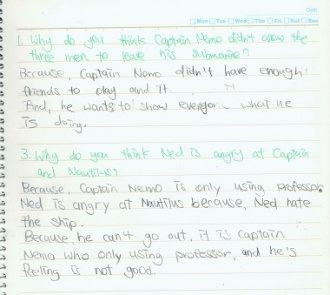 1. Why do you think Captain Nemo didn't allow the
three men to leave his submarine?
Because, Captain Nemo didn't have enough
friends to play and it.
And, he wants to show what he
is doing.
3. Why do you think Ned is angry at Captain
and Nautilus?
Because, Captain Nemo is only using professor,
Ned is angry at Nautilus because, Ned hate
the ship.
Because, he can't go out, it is captain
Nemo who only using professor, and he's
feeling is not good.